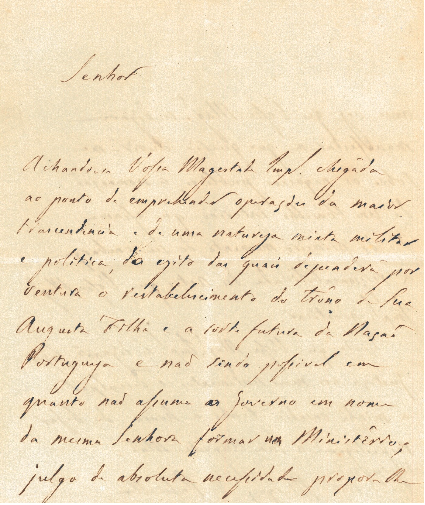 Senhor
Achandose Vossa Magestade Imp. chegada
ao ponto de emprehender operações da maior
trascendencia e de uma natureza mixta militar
e politica, do exito das quais dependerá por
ventura o restabelecimento do trôno de Sua
Augusta Filha e a sorte futura da Nação
Portugueza e não sendo possivel em
quanto não assuma o Governo em nome
da mesma Senhora formar um Ministério,
julgo de absoluta necessidade propor a